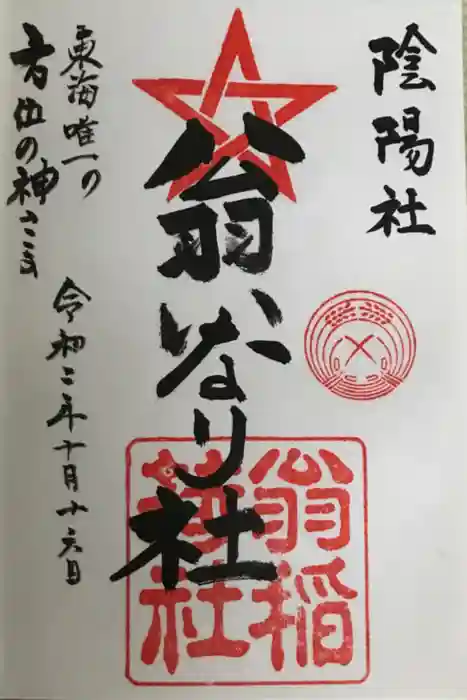 陰陽社
翁いなり社
翁稲荷社
東海唯一の
方位の神さま
令和二年十月十六日